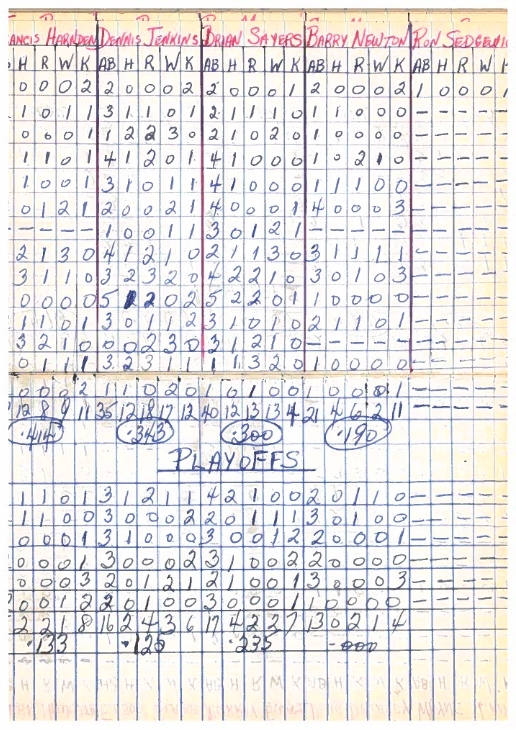 ANCIS HARNDEN DENNIS JENKINS BRIAN SAYERS BARRY NEWTON RON SEDGEWI
H R W K AB H R W K AB H R W K AB H R W K AB H R W
0 0 0 2 2 0 0 0 2 2 0 0 0 1 2 0 0 0 2 1 0 0 0
1 0 1 1 3 1 1 0 1 2 1 1 1 0 1 1 0 0 0 - - - -
0 0 0 1 1 2 2 3 0 2 1 0 2 0 1 0 0 0 0 - - - -
1 1 0 1 4 1 2 0 1 4 1 0 0 0 1 0 2 1 0 - - - -
1 0 0 1 3 1 0 1 1 4 1 0 0 0 1 1 1 0 0 - - - -
0 1 2 1 2 0 0 2 1 4 0 0 0 1 4 0 0 0 3 - - - -
- - - - 1 0 0 1 1 3 0 1 2 1 - - - - - - - - -
2 1 3 0 4 1 2 1 0 2 1 1 3 0 3 1 1 1 1 - - - -
3 1 1 0 3 2 3 2 0 4 2 2 1 0 3 0 1 0 3 - - - -
0 0 0 0 5 1 2 0 2 5 2 2 0 1 1 0 0 0 0 - - - -
1 1 0 1 3 0 1 1 2 3 1 0 1 0 2 1 1 0 1 - - - -
3 2 1 0 0 0 2 3 0 3 1 2 1 0 - - - - - - - - -
0 1 1 1 3 2 3 1 1 1 1 3 2 0 1 0 0 0 0 - - - -
0 0 0 2 1 1 0 2 0 1 0 1 0 0 1 0 0 0 1 - - - -
12 8 9 11 35 12 18 17 12 40 12 13 13 4 21 4 6 2 11
.414 .343 .300 .190
PLAYOFFS
1 1 0 1 3 1 2 1 1 4 2 1 0 0 2 0 1 1 0 - - - -
1 1 0 0 3 0 0 0 2 2 0 1 1 1 3 0 1 0 0 - - - -
0 0 0 1 3 1 0 0 0 3 0 0 1 2 2 0 0 0 1 - - - -
0 0 0 1 3 0 0 0 2 3 1 0 0 2 2 0 0 0 0 - - - -
0 0 0 3 2 0 1 2 1 2 1 0 0 1 3 0 0 0 3 - - - -
0 0 1 2 2 0 1 0 0 3 0 0 0 1 1 0 0 0 0 - - - -
2 2 1 8 16 2 4 3 6 17 4 2 2 7 13 0 2 1 4
.133 .125 .235 .000